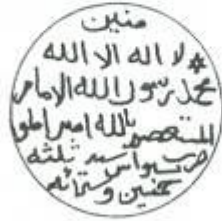 منين
لا اله الا الله
محمد رسول الله الامام
المستعصم بالله امير المو
ضرب سيواس سنه ثلثه
خمسين وستمائه